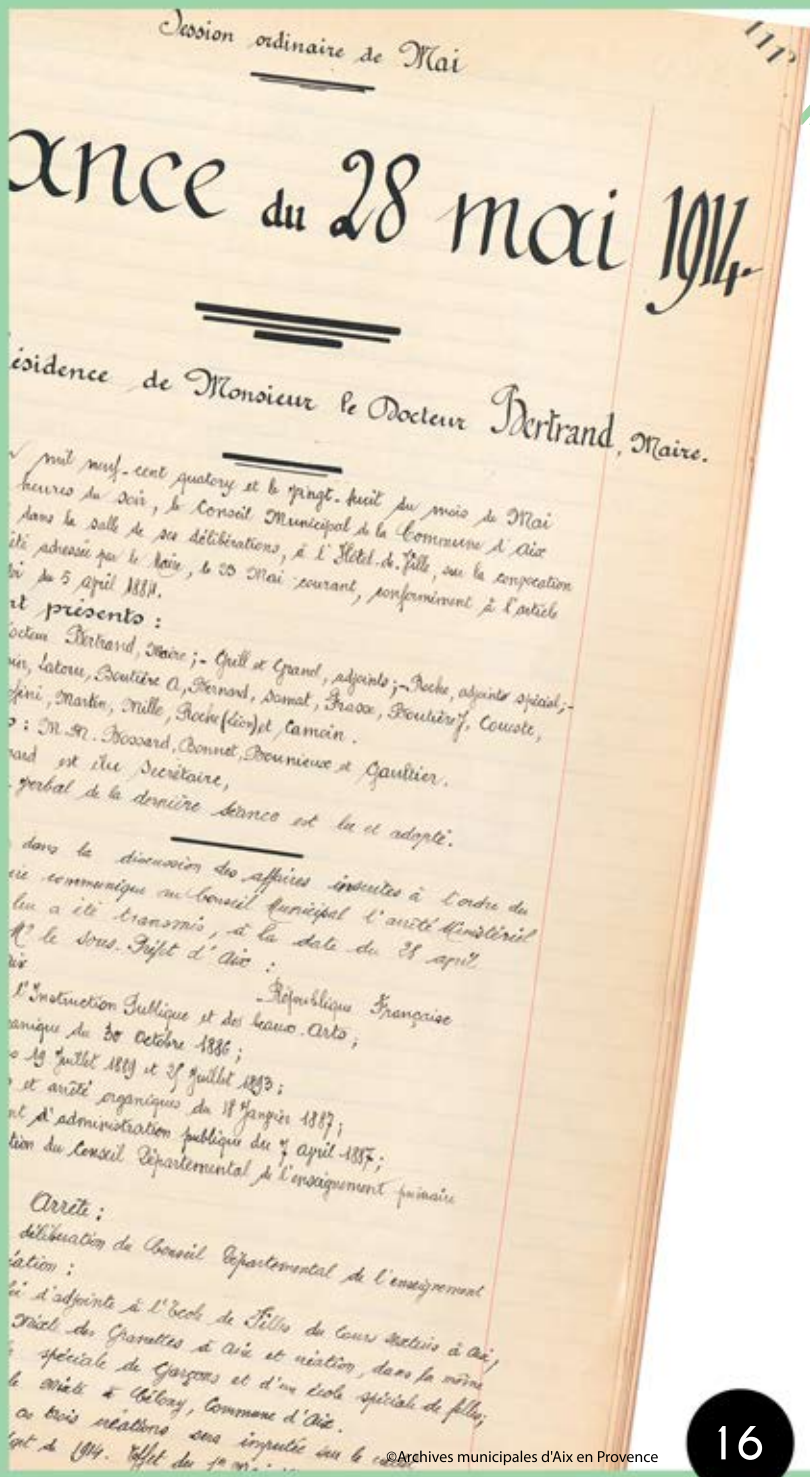 Session ordinaire de Mai
111
ance du 28 mai 1914.
ésidence de Monsieur le Docteur Bertrand, Maire.
mil neuf-cent quatorze et le vingt-huit du mois de Mai
heures du soir, le Conseil Municipal de la Commune d'Aix
dans la salle de ses délibérations, à l'Hôtel-de-Ville, sur la convocation
été adressée par le Maire, le 23 Mai courant, conformément à l'article
oi du 5 avril 1884.
nt présents :
octeur Bertrand, Maire ; - Grill et Grand, adjoints ; - Roche, adjoint spécial ; -
Latour, Boutière A, Bernard, Samat, Boutière J, Couste,
Martin, Mille, Roche (Léon) et Camoin.
: M.M. Bossard, Bonnet, Bounieux et Gaultier.
nard est élu Secrétaire,
verbal de la dernière séance est lu et adopté.
dans la discussion des affaires inscrites à l'ordre du
ire communique au Conseil Municipal l'arrêté Ministériel
lui a été transmis, à la date du 28 avril
Mr le Sous-Préfet d'Aix :
République Française
l'Instruction Publique et des beaux-Arts ;
anique du 30 Octobre 1886 ;
19 Juillet 1889 et 25 Juillet 1893 ;
et arrêté organiques du 18 Janvier 1887 ;
nt d'administration publique du 7 avril 1887 ;
tion du Conseil Départemental de l'enseignement primaire
Arrête :
délibération du Conseil Départemental de l'enseignement
éation :
oi d'adjointe à l'Ecole de Filles du Cours Sextius à Aix,
mixte des Granettes à Aix et création, dans la même
spéciale de Garçons et d'une école spéciale de filles ;
le mixte à Célony, Commune d'Aix.
ces trois créations sera imputée sur le crédit
1914. Effet du 1er
©Archives municipales d'Aix en Provence
16